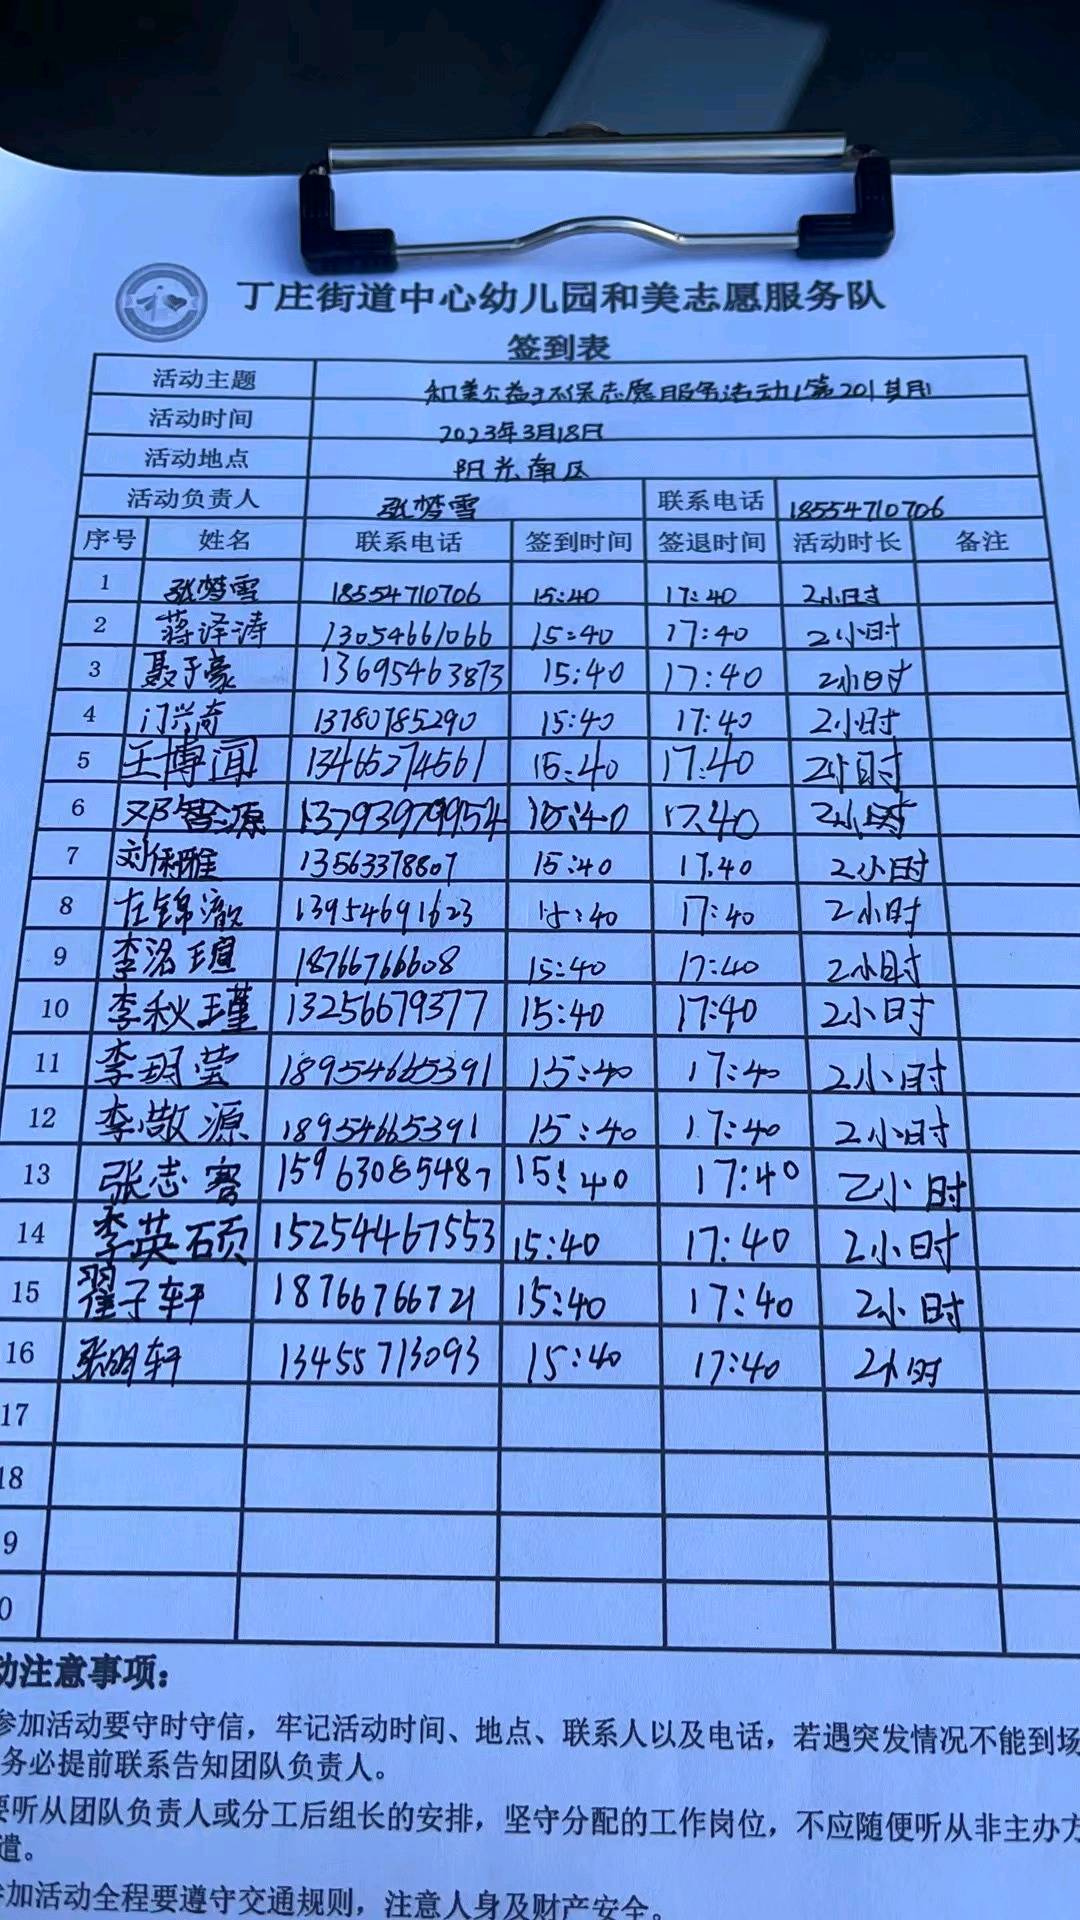 丁庄街道中心幼儿园和美志愿服务队
签到表
活动主题 和美公益环保志愿服务活动第201期
活动时间 2023年3月18日
活动地点 阳光南区
活动负责人 张梦雪 联系电话 18554710706
序号 姓名 联系电话 签到时间 签退时间 活动时长 备注
1 张梦雪 18554710706 15:40 17:40 2小时
2 蒋泽涛 13054661066 15:40 17:40 2小时
3 聂子豪 13695463873 15:40 17:40 2小时
4 门兴奇 13780785290 15:40 17:40 2小时
5 王博闻 13465274561 15:40 17:40 2小时
6 邓智源 13793979954 15:40 17:40 2小时
7 刘保雅 13563378807 15:40 17.40 2小时
8 左锦澈 13954691623 15:40 17:40 2小时
9 李洺瑄 18766766608 15:40 17:40 2小时
10 李秋瑾 13256679377 15:40 17:40 2小时
11 李玥莹 18954665391 15:40 17:40 2小时
12 李敬源 18954665391 15:40 17:40 2小时
13 张志 15963085487 15:40 17:40 2小时
14 李英硕 15254467553 15:40 17:40 2小时
15 翟子轩 18766766721 15:40 17:40 2小时
16 张明轩 13455713093 15:40 17:40 2小时
17
18
9
0
动注意事项：
参加活动要守时守信，牢记活动时间、地点、联系人以及电话，若遇突发情况不能到场
务必提前联系告知团队负责人。
要听从团队负责人或分工后组长的安排，坚守分配的工作岗位，不应随便听从非主办方
遣。
参加活动全程要遵守交通规则，注意人身及财产安全。